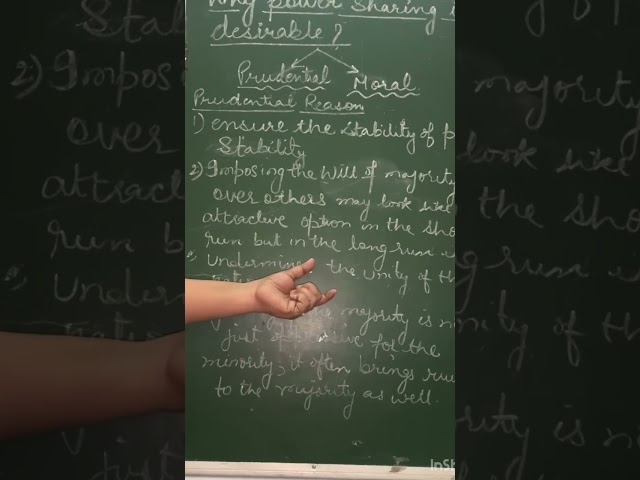 Why power sharing is
desirable?
Prudential Moral
Prudential Reason
1) ensure the stability of
Stability
2) Imposing the will of majority
over others may look like
attractive option in the
run but in the long run
undermines the unity of
majority is
just oppressive for the
minority; it often brings
to the majority as well.